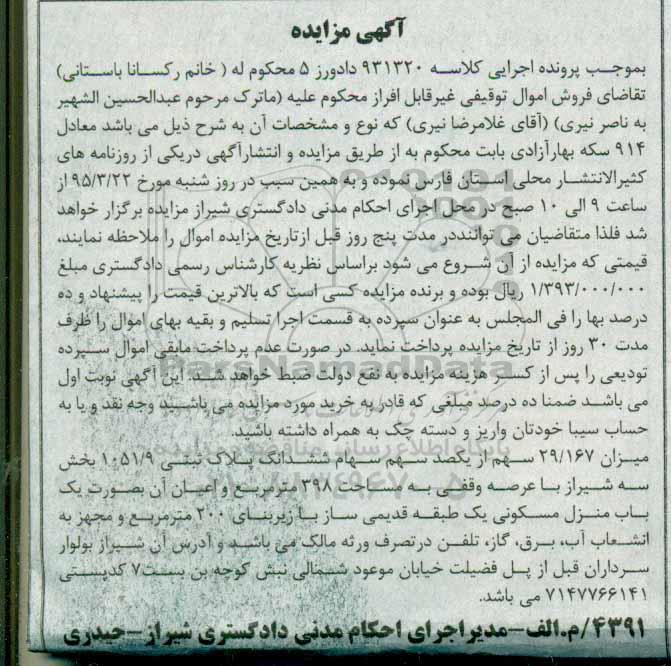 آگهی مزایده
بموجب پرونده اجرایی کلاسه ۹۳۱۳۲۰ دادورز ۵ محکوم له ( خانم رکسانا باستانی)
تقاضای فروش اموال توقیفی غیرقابل افراز محکوم علیه (ماترک مرحوم عبدالحسین الشهیر
به ناصر نیری) (آقای غلامرضا نیری) که نوع و مشخصات آن به شرح ذیل می باشد معادل
۹۱۴ سکه بهارآزادی بابت محکوم به از طریق مزایده و انتشارآگهی دریکی از روزنامه های
کثیرالانتشار محلی استان فارس نموده و به همین سبب در روز شنبه مورخ ۹۵/۳/۲۲ از
ساعت ۹ الی ۱۰ صبح در محل اجرای احکام مدنی دادگستری شیراز مزایده برگزار خواهد
شد فلذا متقاضیان می تواننددر مدت پنج روز قبل ازتاریخ مزایده اموال را ملاحظه نمایند،
قیمتی که مزایده از آن شروع می شود براساس نظریه کارشناس رسمی دادگستری مبلغ
۱/۳۹۳/۰۰۰/۰۰۰ ریال بوده و برنده مزایده کسی است که بالاترین قیمت را پیشنهاد و ده
درصد بها را فی المجلس به عنوان سپرده به قسمت اجرا تسلیم و بقیه بهای اموال را ظرف
مدت ۳۰ روز از تاریخ مزایده پرداخت نماید. در صورت عدم پرداخت مابقی اموال سپرده
تودیعی را پس از کسر هزینه مزایده به نفع دولت ضبط خواهد شد. این آگهی نوبت اول
می باشد ضمنا ده درصد مبلغی که قادر به خرید مورد مزایده می باشید وجه نقد و یا به
حساب سیبا خودتان واریز و دسته چک به همراه داشته باشید.
میزان ۲۹/۱۶۷ سهم از یکصد سهم سهام ششدانگ پلاک ثبتی ۱۰۵۱/۹ بخش
سه شیراز با عرصه وقفی به مساحت ۳۹۸ مترمربع و اعیان آن بصورت یک
باب منزل مسکونی یک طبقه قدیمی ساز با زیربنای ۲۰۰ مترمربع و مجهز به
انشعاب آب، برق، گاز، تلفن درتصرف ورثه مالک می باشد و آدرس آن شیراز بولوار
سرداران قبل از پل فضیلت خیابان موعود شمالی نبش کوچه بن بست۷ کدپستی
۷۱۴۷۷۶۶۱۴۱ می باشد.
۴۳۹۱/م.الف-مدیراجرای احکام مدنی دادگستری شیراز-حیدری
ParsNamadData